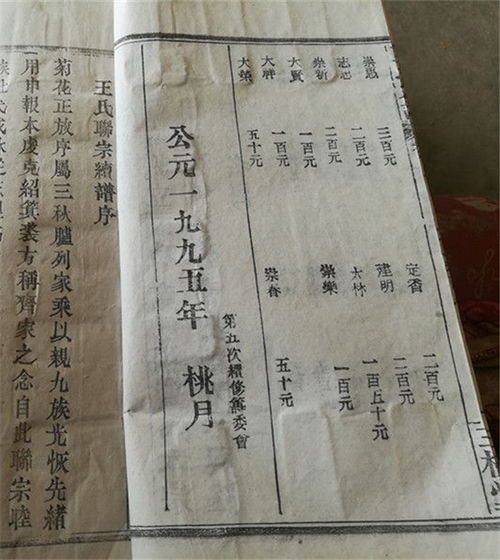 崇恩 三百元 定香 二百元
二百元 建明 二百元
崇新 二百元 大竹 一百五十元
大賢 一百元 崇樂 一百元
大祥 一百元
大榮 五十元 崇春 五十元
第五次續修篹委會
公元一九九五年 桃月
王氏聯宗續譜序
菊花正放序屬三秋臚列家乘以親九族光恢先緒
用申報本虔克紹箕裘方稱齊家之念自此聯宗睦